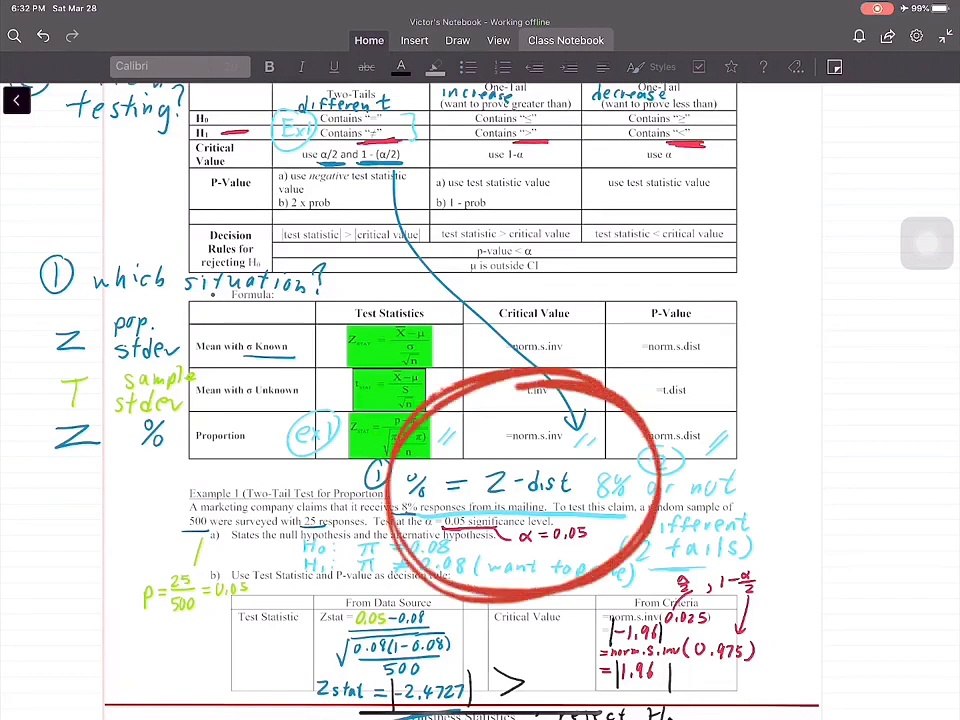 6:32 PM Sat Mar 28
99%
Victor's Notebook - Working offline
Home Insert Draw View Class Notebook
Calibri B I U abc A Styles
testing?
Two-Tails One-Tail One-Tail
different increase decrease
(want to prove greater than) (want to prove less than)
H₀ Contains "=" Contains "≤" Contains "≥"
Ex1
H₁ Contains "≠" Contains ">" Contains "<"
Critical Value use α/2 and 1 - (α/2) use 1-α use α
P-Value a) use negative test statistic value a) use test statistic value use test statistic value
b) 2 x prob b) 1 - prob
Decision Rules for rejecting H₀ |test statistic| > |critical value| test statistic > critical value test statistic < critical value
p-value < α
μ is outside CI
① which situation?
• Formula:
Test Statistics Critical Value P-Value
Z pop. stdev
Mean with σ Known Z_STAT = X̄-μ / σ/√n =norm.s.inv =norm.s.dist
T sample stdev
Mean with σ Unknown t_STAT = X̄-μ / S/√n t.inv =t.dist
Z %
Proportion ex1 Z_STAT =norm.s.inv norm.s.dist
① % = Z-dist 8% or not
②
Example 1 (Two-Tail Test for Proportion)
A marketing company claims that it receives 8% responses from its mailing. To test this claim, a random sample of
500 were surveyed with 25 responses. Test at the α = 0.05 significance level.
different
(2 tails)
a) States the null hypothesis and the alternative hypothesis.
α = 0.05
H₀: π = 0.08
H₁: π ≠ 0.08 (want to prove)
b) Use Test Statistic and P-value as decision rule:
α/2 , 1-α/2
p = 25/500 = 0.05
From Data Source From Criteria
Test Statistic Zstat = 0.05-0.08 / √0.08(1-0.08)/500 Critical Value =norm.s.inv(0.025)
|-1.96|
=norm.s.inv(0.975)
= |1.96|
Zstat = |-2.4727| >
Business Statistics
reject H₀